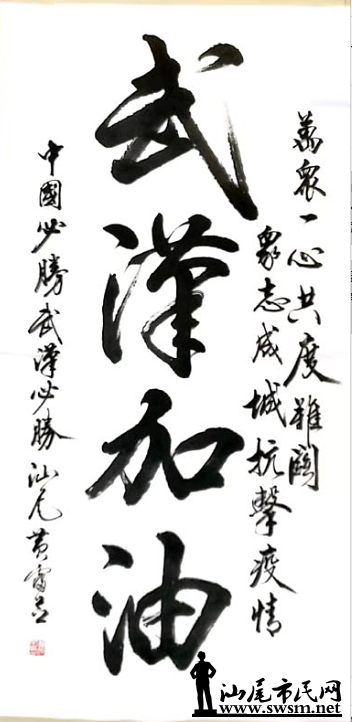 萬衆一心共度難關
衆志成城抗擊疫情
武漢加油
中國必勝武漢必勝汕尾黄
汕尾市民网
www.swsm.net